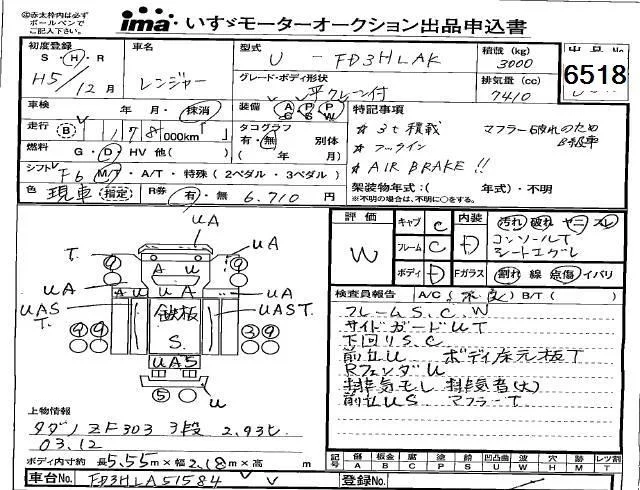 ㊟赤太枠内は必ず
ボールペンで
ご記入下さい。
ima いすゞモーターオークション出品申込書
初度登録
S・H・R
H5/12月
車名
レンジャー
型式
U - FD3HLAK
積載 (kg)
3000
排気量 (cc)
7410
6518
グレード・ボディ形状
平 クレーン付
車検
年 月・抹消
装備 AC PS PW
走行
B 178,000km
タコグラフ
有・無 別体
( 年 月)
燃料
G・D・HV 他( )
シフト F6 MT・A/T・特殊 (2ペダル・3ペダル)
色 現車 (指定)
R券 有・無 6.710 円
特記事項
☆ 3t積載
マフラー破れのため
☆ フックイン
☆ AIR BRAKE !!
架装物年式:( 年式)・不明
※不明の場合は、不明に○をする。
評価
W
キャブ C
フレーム C
ボディ D
内装 D
汚れ 破れ ヤニ スレ
コンソールT
シートエグレ
Fガラス 割れ 線 点傷 イバリ
検査員報告 A/C (不良) B/T ( )
フレームS.C.W
サイドガードUT
下回りS.C
前立U ボディ床元板T
RフェンダU
排気もし 排気音(大)
前立US マフラーT
UA
UA
T.
A U
UA
AU
UA
UA
UAS
T.
鉄板
S.
UAST.
UAS
U
9 9
9 9
3 9
5
上物情報
タダノ ZF303 3段 2.93t
03.12
ボディ内寸約 長5.55m×幅2.18m×高 m
記号
傷 A
板金 B
腐 C
塗 P
錆 S
凹凸曲 U
波 W
穴 H
跡 M
レツ割 T
車台No. FD3HLA51584
登録No.